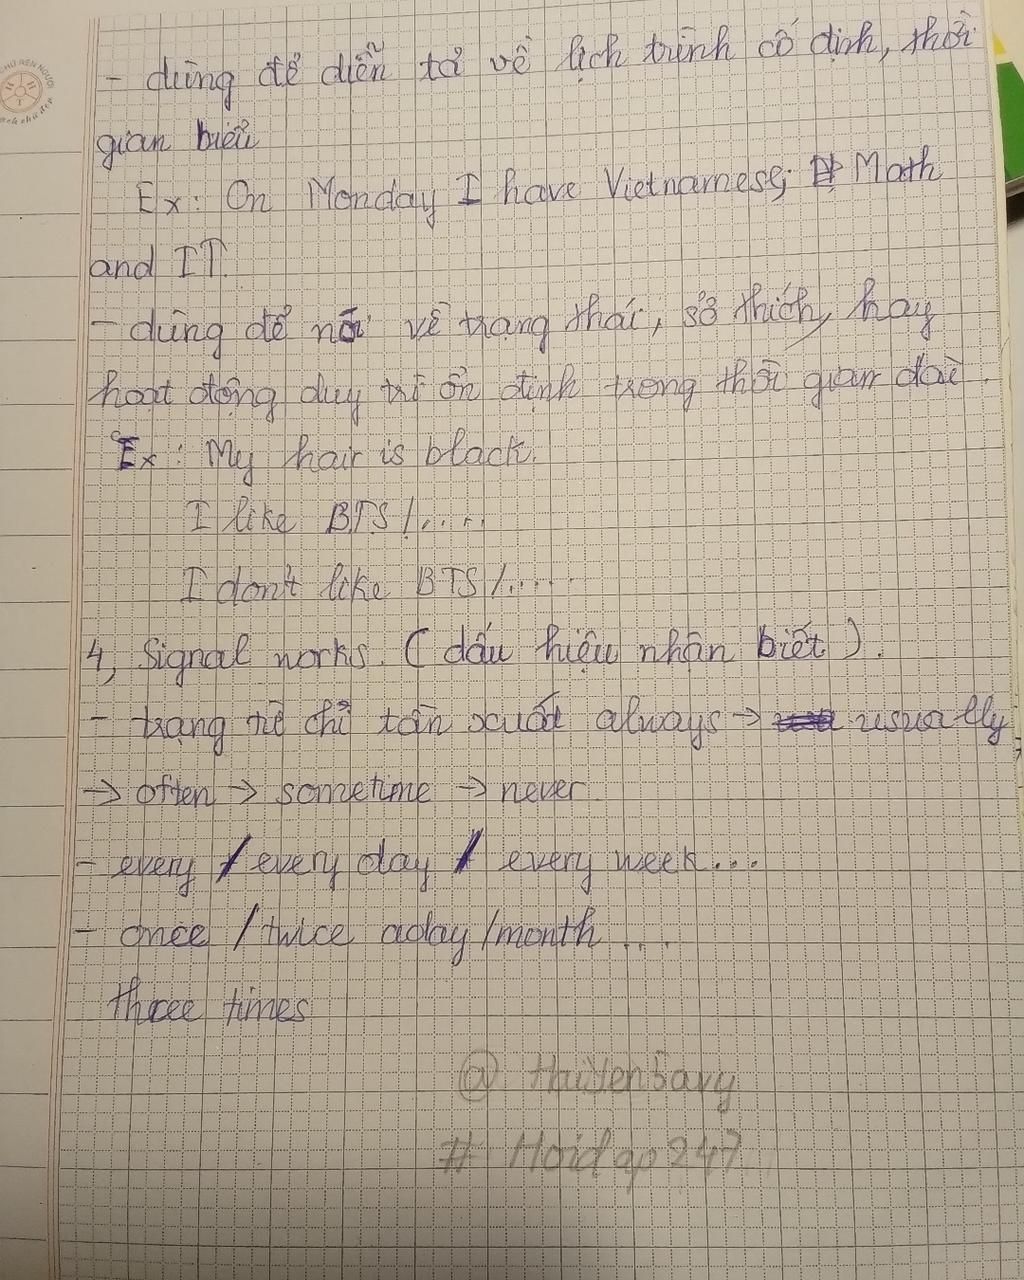 - dùng để diễn tả về lịch trình cố định, thời
gian biểu
Ex: On Monday I have Vietnamese, Math
and IT.
- dùng để nói về trạng thái, sở thích, hay
hoạt động duy trì ổn định trong thời gian dài.
Ex: My hair is black.
I like BTS /.....
I don't like BTS /.....
4, Signal works. ( dấu hiệu nhận biết ).
- trạng từ chỉ tần xuất always → usually
→ often → sometime → never.
- every / every day / every week...
- once / twice aday /month ...
three times
@ HaiYen5avy
# Hoidap247